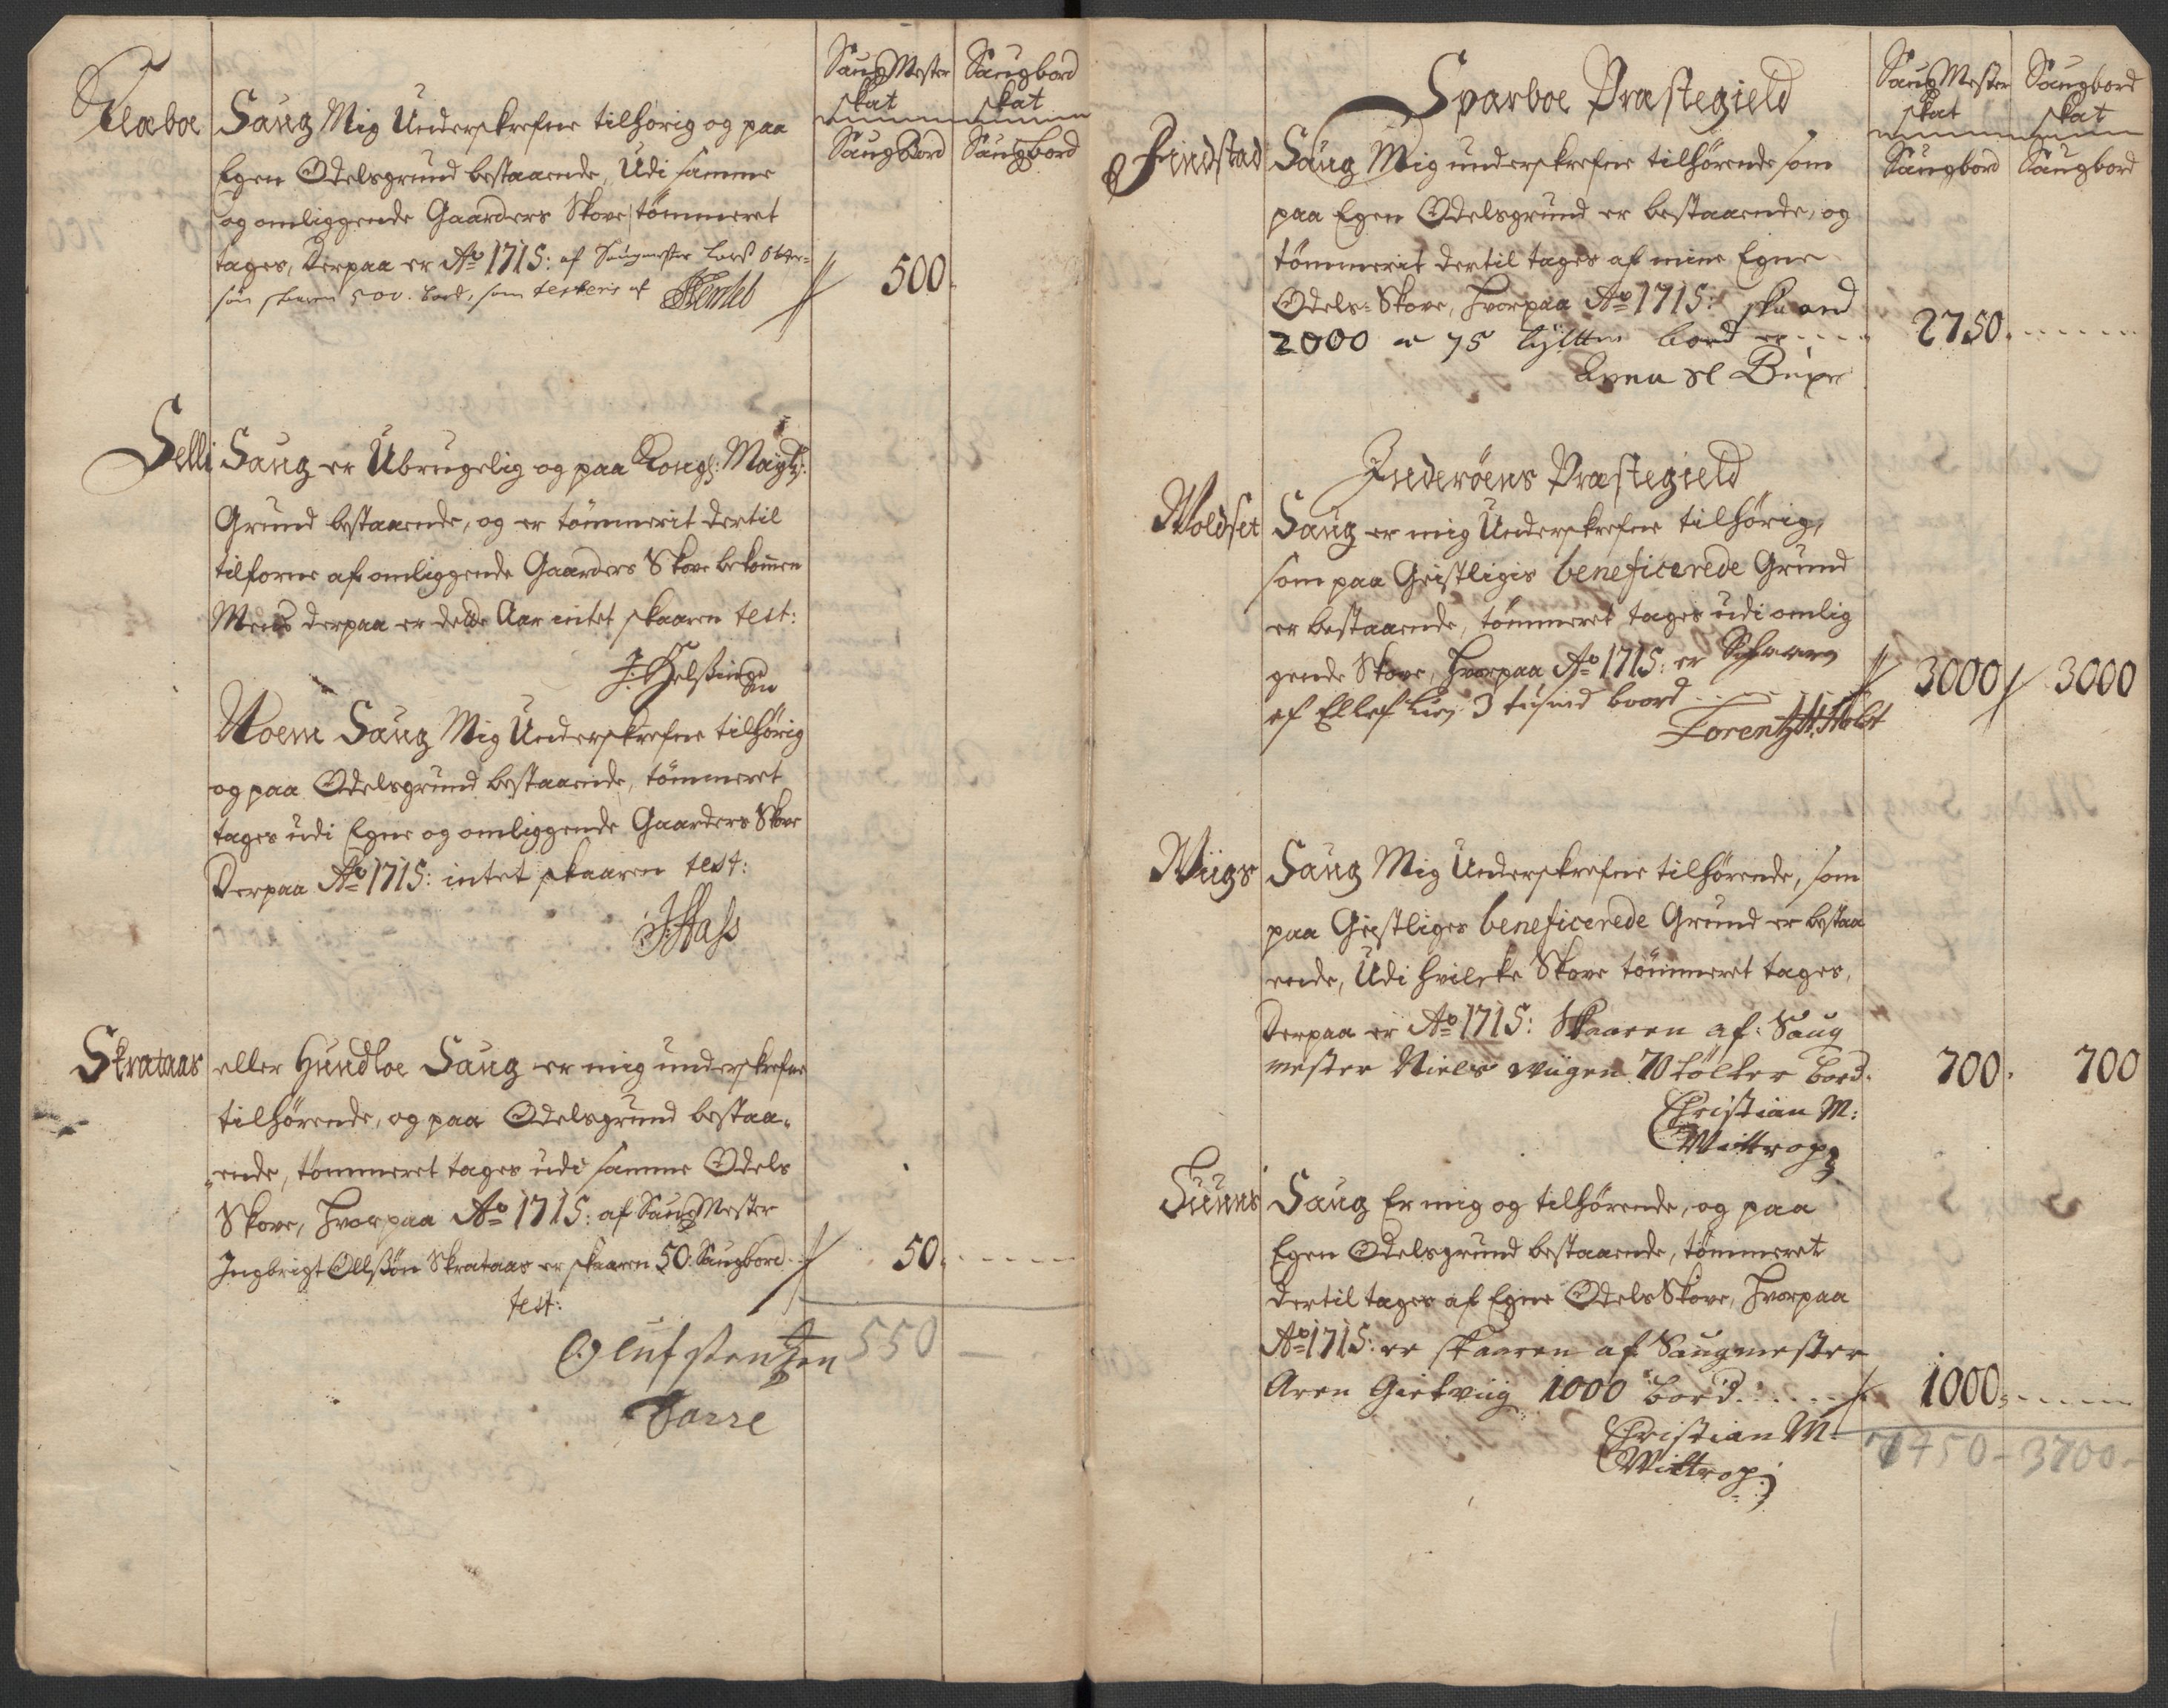 SaugMester Saugbord
skat skat
SaugBord Saugbord
Klæboe Saug Mig Underskrefne tilhörig og paa
Egen Odelsgrund bestaaende, Udi samme
og omliggende Gaarders Skove tömmeret
tages, Derpaa er Ao 1715: af Saugmester Lars
sön skaaren 500. bord, som testeris af 500.
Selli Saug er Ubrugelig og paa Kongl: Mayts:
Grund bestaaende, og er tömmerit dertil
tilforne af omliggende Gaarders Skove bekom̄en
Mens derpaa er dette Aar intet skaaren test:
Noem Saug Mig Underskrefne tilhörig
og paa Odelsgrund bestaaende, tömmeret
tages udi Egne og omliggende Gaarders Skove
Derpaa Ao 1715: intet skaaren test:
Skrataas eller Hundloe Saug er mig underskrefne
tilhörende, og paa Odelsgrund bestaa-
ende, tömmeret tages udi samme Odels
Skove, Hvorpaa Ao 1715: af SaugMester
Ingbrigt Ollssön Skrataas er skaaren 50. Saugbord 50.
test:
Oluf stentzen 550
Darre
SaugMester Saugbord
skat skat
Saugbord Saugbord
Sparboe Præstegield
Findstad Saug Mig underskrefne tilhörende som
paa Egen Odelsgrund er bestaaende, og
tömmerit dertil tages af mine Egne
Odels-Skove, Hvorpaa Ao 1715:
2000 75 bord er 2750.
Anna Sl
Inderöens Præstegield
Woldset Saug er mig Underskrefne tilhörig,
som paa Geistligis beneficerede Grund
er bestaaende, tömmeret tages udi omlig
gende Skove, Hvorpaa Ao 1715: er Schaaren
af Ellef Lien 3 tusind boord 3000 3000
Lorentz M: Holst
Wiigs Saug Mig Underskrefne tilhörende, som
paa Geistliges beneficerede Grund er bestaa
ende, Udi hvilcke Skove tömmeret tages,
Derpaa er Ao 1715: Skaaren af: Saug
mester Niels Wiigen 70 tölter Bord. 700. 700
Christian M:
Wittrop
Suunds Saug Er mig og tilhörende, og paa
Egen Odelsgrund bestaaende, tömmeret
dertil tages af Egne Odels Skove, Hvorpaa
Ao 1715: er skaaren af Saugmester
Aren Giekviig 1000 Bord 1000.
Christian M:
Wittrop:
7450 - 3700 -